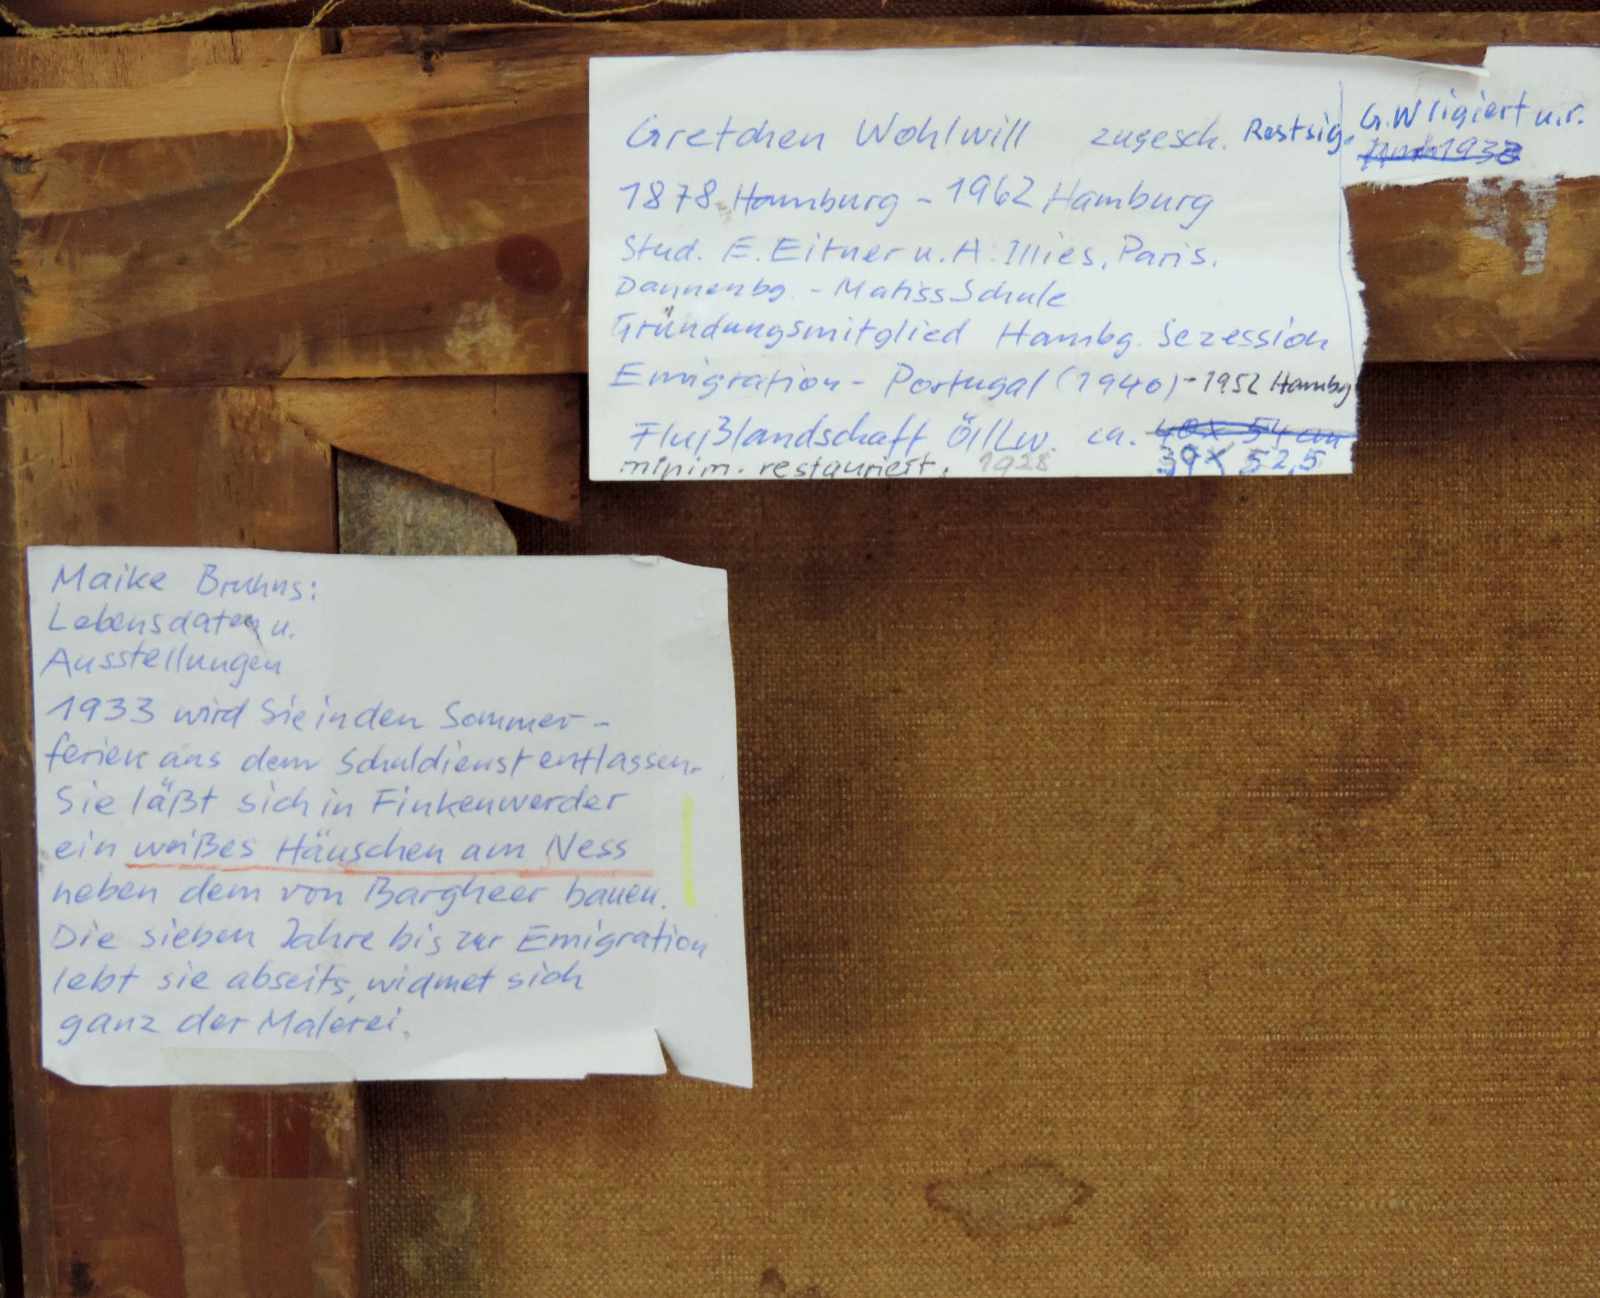 Gretchen Wohlwill zugesch. Restsig. G.W ligiert u.r.
1878 Hamburg - 1962 Hamburg
Stud. E. Eitner u. A. Illies, Paris.
Dannenbg. - Matiss Schule
Gründungsmitglied Hambg. Sezession
Emigration - Portugal (1940) - 1952 Hambg
Flußlandschaft Öl/Lw. ca. 40 x 54 cm
minim. restauriert. 1928 39 x 52,5
Maike Bruhns:
Lebensdaten u.
Ausstellungen
1933 wird Sie in den Sommer-
ferien aus dem Schuldienst entlassen.
Sie läßt sich in Finkenwerder
ein weißes Häuschen am Ness
neben dem von Bargheer bauen.
Die sieben Jahre bis zur Emigration
lebt sie abseits, widmet sich
ganz der Malerei.